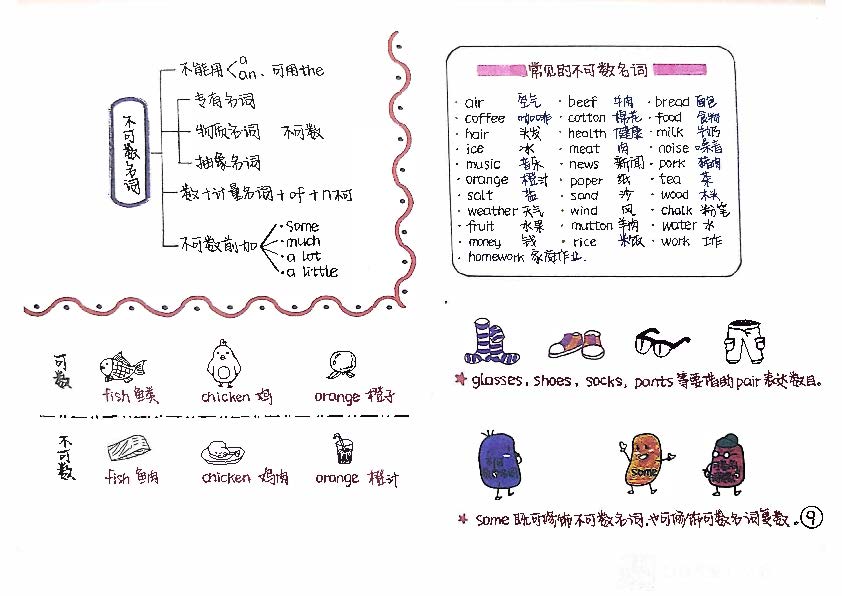 不可数名词
不能用 a an、可用the
专有名词
物质名词 不可数
抽象名词
数+计量名词+of+n不可
不可数前加
·some
·much
·a lot
·a little
常见的不可数名词
·air 空气 ·beef 牛肉 ·bread 面包
·coffee 咖啡 ·cotton 棉花 ·food 食物
·hair 头发 ·health 健康 ·milk 牛奶
·ice 冰 ·meat 肉 ·noise 噪音
·music 音乐 ·news 新闻 ·pork 猪肉
·orange 橙汁 ·paper 纸 ·tea 茶
·salt 盐 ·sand 沙 ·wood 木头
·weather 天气 ·wind 风 ·chalk 粉笔
·fruit 水果 ·mutton 羊肉 ·water 水
·money 钱 ·rice 米饭 ·work 工作
·homework 家庭作业.
可数
fish 鱼类 chicken 鸡 orange 橙子
不可数
fish 鱼肉 chicken 鸡肉 orange 橙汁
★ glasses, shoes, socks, pants 等要借助pair 表达数目。
some
★ some 既可修饰不可数名词,也可修饰可数名词复数。
9